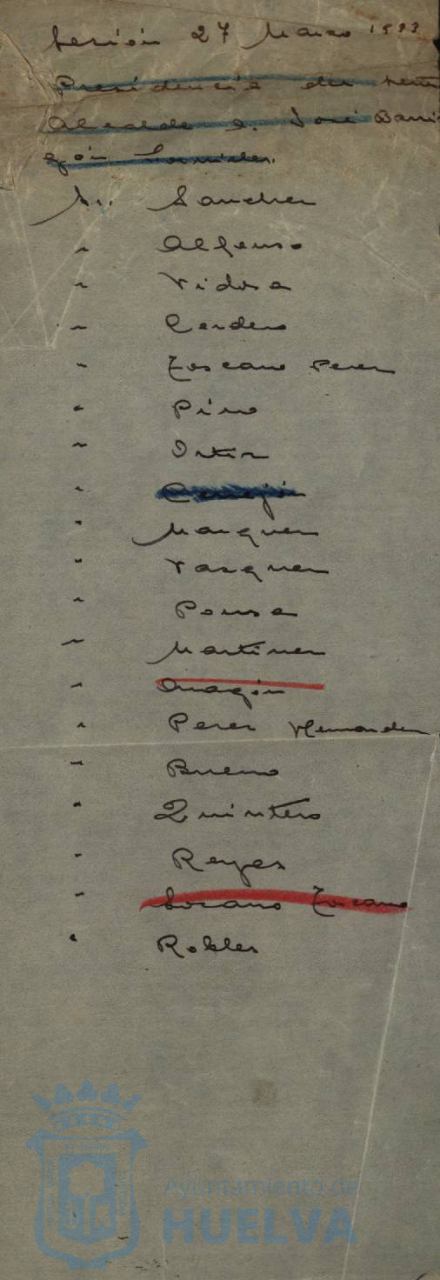 Sesión 27 Marzo 1933
Presidencia del
Alcalde D. José Barri
gón
Sr. Sanchez
" Alfonso
" Vidosa
" Cordero
" Toscano Perez
" Pino
" Ortiz
" Cerrejón
" Marquez
" Vazquez
" Ponsa
" Martinez
" Aragón
" Perez Hernandez
" Bueno
" Quintero
" Reyes
" Lozano Toscano
" Robles
Ayuntamiento de
HUELVA